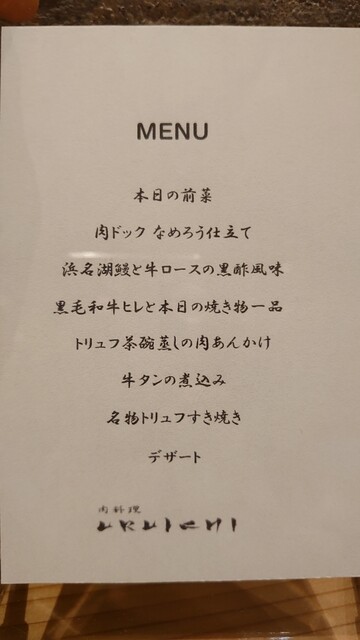 MENU
本日の前菜
肉ドック なめろう仕立て
浜名湖鰻と牛ロースの黒酢風味
黒毛和牛ヒレと本日の焼き物一品
トリュフ茶碗蒸しの肉あんかけ
牛タンの煮込み
名物トリュフすき焼き
デザート
肉料理